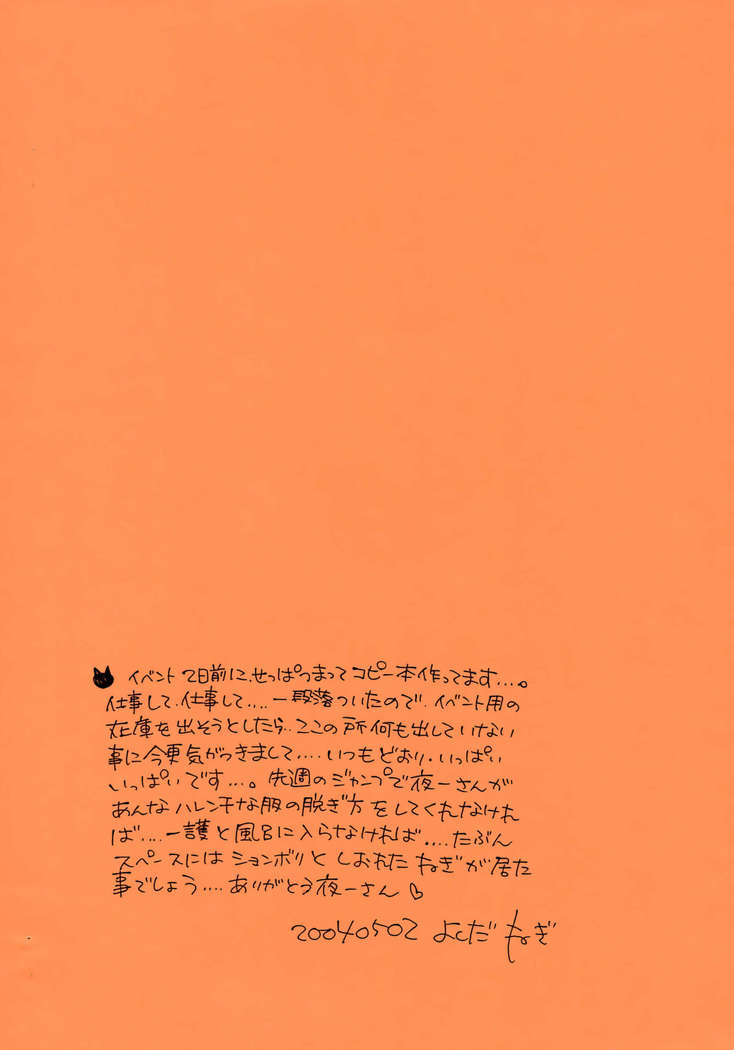 イベント2日前に、せっぱつまってコピー本作ってます....。
仕事して、仕事して....一段落ついたので、イベント用の
在庫を出そうとしたら、ここの所何も出していない
事に今更気がつきまして.....いつもどおり・いっぱい
いっぱいです....。先週のジャンプで夜一さんが
あんなハレンチな服の脱ぎ方をしてくれなけれ
ば....一護と風呂に入らなければ....たぶん
スペースにはションボリとしおれたねぎが居た
事でしょう....ありがとう夜一さん♡
20040502 よしだ ねぎ